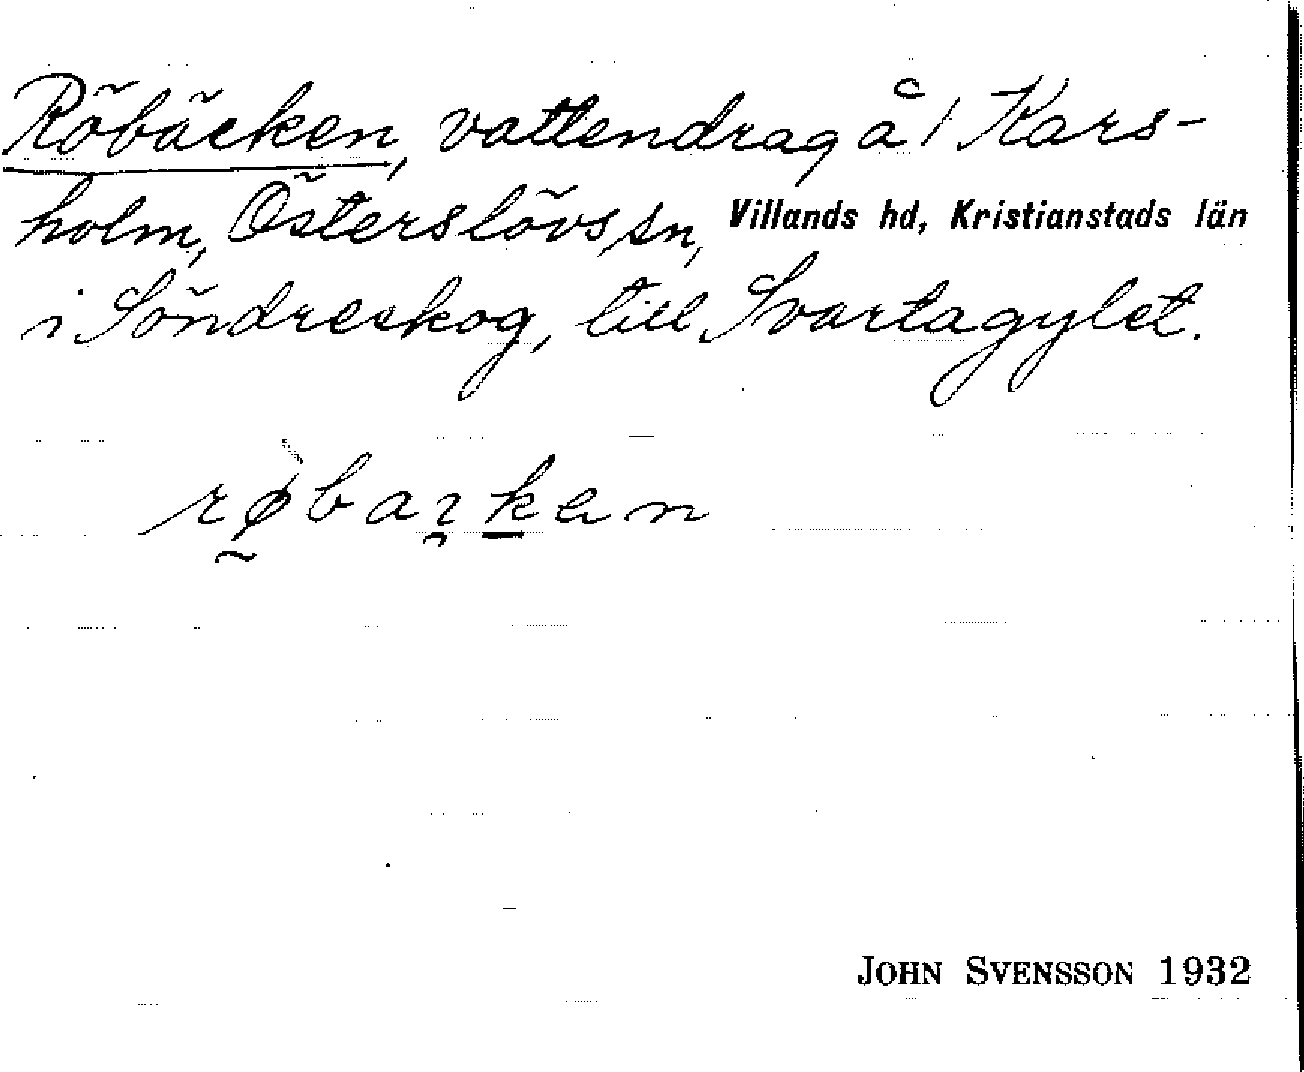 Röbäcken, vattendrag å 1 Kars-
holm, Österslövs sn, Villands hd, Kristianstads län
i Söndreskog, till Svartagylet.
røbaꝛken
JOHN SVENSSON 1932